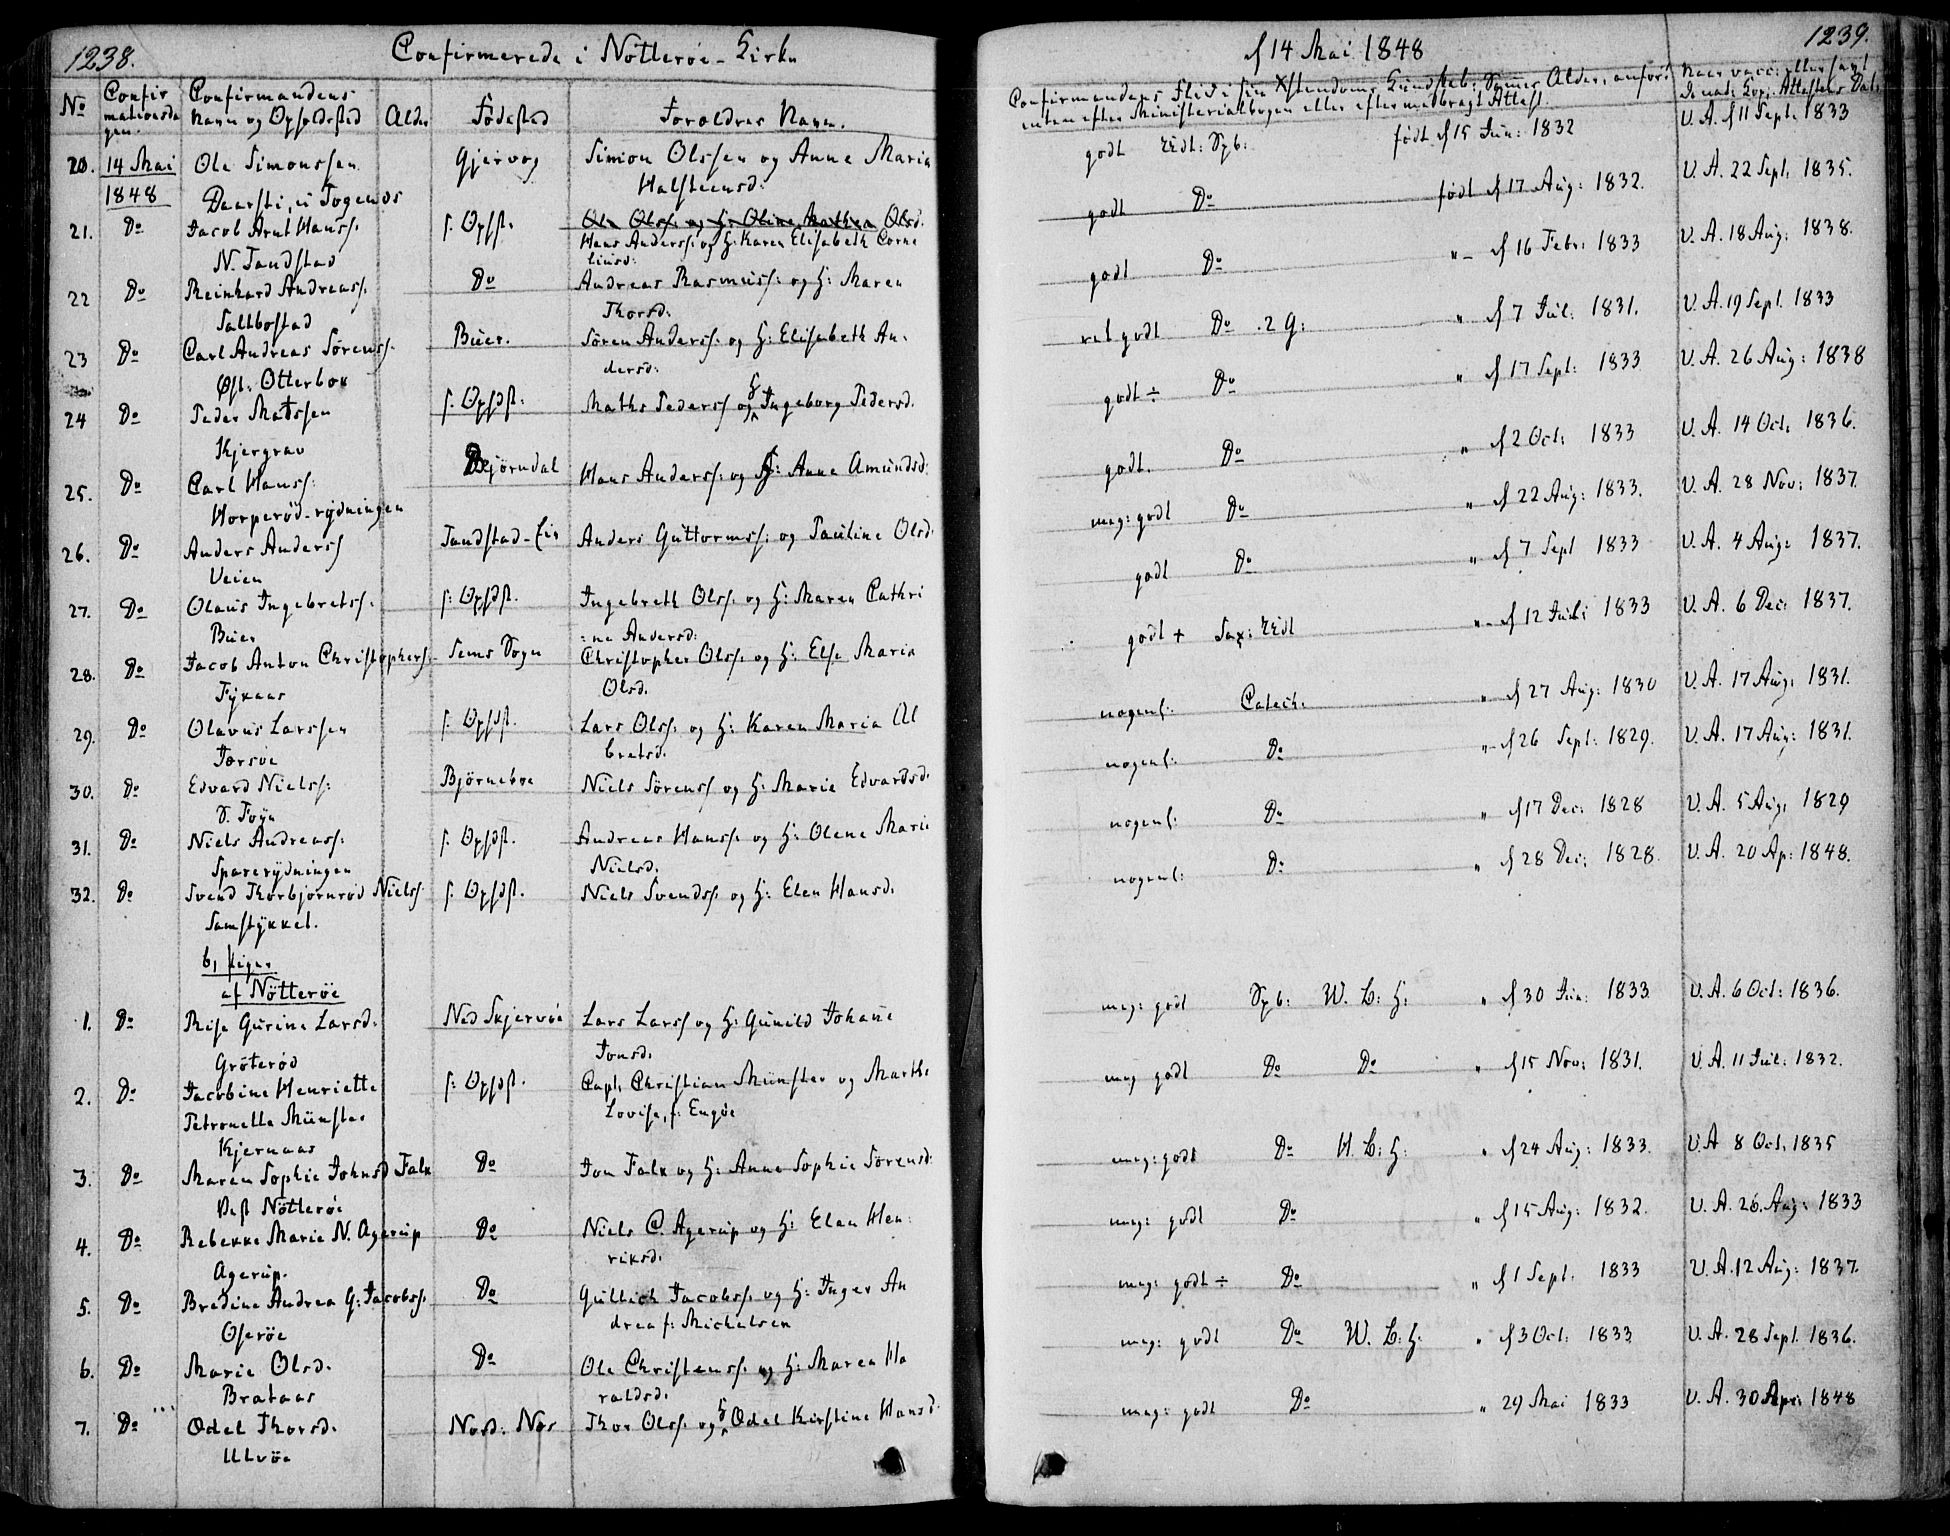 1238.
Confirmerede i Nøtterøe Kirke
No
Confirmationsdagen.
Confirmandens Navn og Opholdsted
Alder
Födested
Foreldres Navn.
20. 14 Mai 1848 Ole Simonssen Gjervog Simon Olssen og Anne Maria
Halsteensd:
21. Do Jacob Arnt Hanss. f. Opst. Ole Olss. og H: Oline Mathea Olsd.
N. Tandstad Hans Anderss. og H: Karen Elisabeth Corne
liusd:
22 Do Reinhard Andreass. Do Andreas Rasmuss: og H: Maren
Saltbostad Thorsd.
23 Do Carl Andreas Sörenss. Buer. Sören Anderss. og H: Elisabeth An-
Øst: Otterbek dersd:
24 Do Peder Matssen f. Opsdst: Maths Pederss og H Ingeborg Pedersd.
Kjergrav
25. Do Carl Hanss: Bjørndal Hans Anderss: og H: Anne Amundsd:
Horperöd-rydningen
26. Do Anders Anderss Tandstad-Eie Anders Guttormss: og Pauline Olsd.
Veien
27. Do Olaus Ingebretss. f: Opsdst. Ingebreth Olss. og H: Maren Cathri
Buer :ne Andersd:
28. Do Jacob Anton Christophers: Sems Sogn Christopher Olss. og H: Else Maria
Olsd.
29. Do Olavus Larssen f. Opsst. Lars Olss. og H: Karen Maria Al
Torsøe bretsd.
30. Do Edvard Nielss: Björneboe Niels Sörenss og H: Marie Edvardsd.
S. Föyn
31. Do Niels Andreass: f. Opsdst. Andreas Hanss. og H: Olene Marie
Sparerydningen Nielsd.
32. Do Svend Thorbjörnröd Nielss. f. Opsdst. Niels Svendss. og H: Elen Hansd.
Samstykket.
b, Piger
af Nötteröe
1. Do Rise Gurine Larsd. Ned Skjervöe Lars Larss og H: Gunild Johane
Gröteröd Jonsd.
2. Do Jacobine Henriette f: Opsdst. Capt. Christian Münster og Marthe
Petronelle Münster Lovise, f: Engöe
Kjernaas
3. Do Maren Sophie Johnsd Falk Do Jon Falk og H: Anne Sophie Sörensd:
Vest Nötteröe
4. Do Rebekke Marie N. Agerup Do Niels C. Agerup og H: Elen Hen:
Agerup. riksd.
5. Do Bredine Andrea G: Jacobss. Do Gullich Jacobss. og H: Inger An
Oseröe drea f: Michelsen
6. Do Marie Olsd. Do Ole Christenss. og H: Maren Ha
Brataas raldsd.
7. Do Odel Thorsd. Nord. Nes Thor Olss. og H Odel Kirstine Hansd.
Ulvöe
1239.
d 14 Mai 1848
Confirmandens Flid i sin Xstendoms Kundskab; Sammes Alder, anfört
enten efter Ministerialbogen eller efter medbragt Attest.
Naar vacc: eller havt
de nat: Kop. Attestens Dat.
godt Udt: Spb: født d 15 Jun: 1832 V. A. d 11 Sept. 1833
godt Do født d 17 Aug: 1832. V. A. 22 Sept. 1835.
godt Do " d 16 Febr: 1833 V. A. 18 Aug: 1838.
ret godt Do . 2 G: " d 7 Jul: 1831. V. A. 19 Sept. 1833
godt ÷ Do " d 17 Sept: 1833 V. A. 26 Aug: 1838
godt. Do " d 2 Oct: 1833 V. A. 14 Oct. 1836.
meg: godt Do " d 22 Aug: 1833. V. A. 28 Nov: 1837.
godt Do " d 7 Sept 1833 V. A. 4 Aug: 1837.
godt + Sax: Udt " d 12 Juli 1833 V. A. 6 Dec: 1837.
nogenl: Catech. " d 27 Aug: 1830 V. A. 17 Aug: 1831.
nogenl: Do " d 26 Sept: 1829. V. A. 17 Aug: 1831.
nogenl: Do " d 17 Dec: 1828 V. A. 5 Aug. 1829
nogenl: Do " d 28 Dec: 1828. V. A. 20 Ap: 1848.
meg: godt Spb: W. B: H: " d 30 Jun: 1833 V. A. 6 Oct: 1836.
meg godt Do Do " d 15 Nov: 1831. V. A. 11 Jul: 1832.
meg: godt Do H. B: H: " d 24 Aug: 1833. V. A 8 Oct. 1835
meg: godt Do " d 15 Aug: 1832. V. A. 26. Aug: 1833
meg: godt ÷ Do " d 1 Sept. 1833 V. A. 12 Aug: 1837.
meg: godt Do W. B: H. " d 3 Oct: 1833 V. A. 28 Sept. 1836.
meg: godt Do " 29 Mai 1833 V. A. 30 Apr: 1848